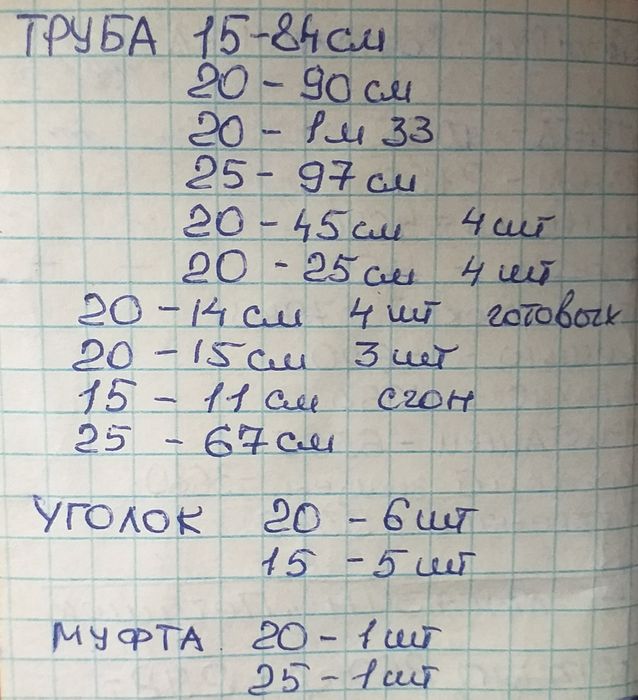 ТРУБА 15-84см
20 - 90 см
20 - 1м 33
25 - 97 см
20 - 45 см 4 шт
20 - 25 см 4 шт
20 - 14 см 4 шт готовых
20 - 15 см 3 шт
15 - 11 см сгон
25 - 67 см
УГОЛОК 20 - 6 шт
15 - 5 шт
МУФТА 20 - 1 шт
25 - 1 шт